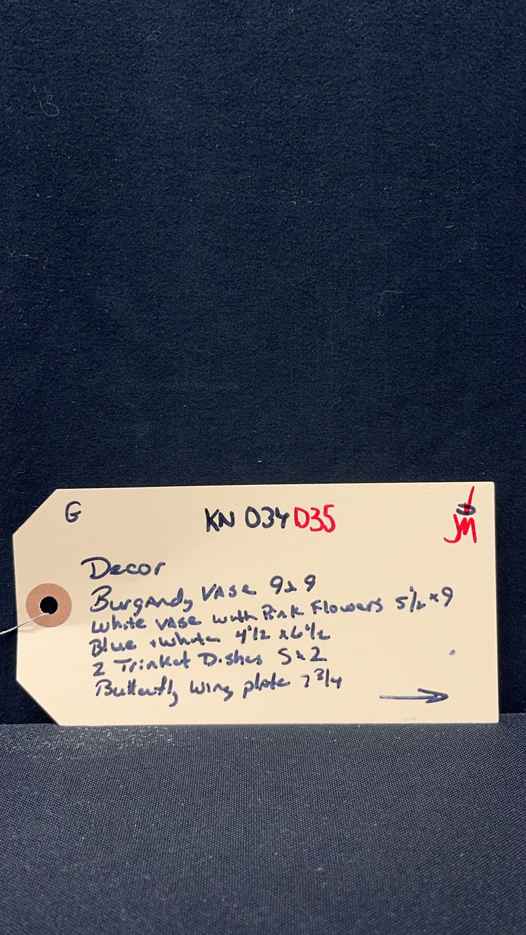 G
KN 034 035
JM
Decor
Burgandy Vase 9x9
White vase with Pink Flowers 5 1/2 x9
Blue + White 4 1/2 x 6 1/2
2 Trinket Dishes 5x2
Butterfly wing plate 7 3/4